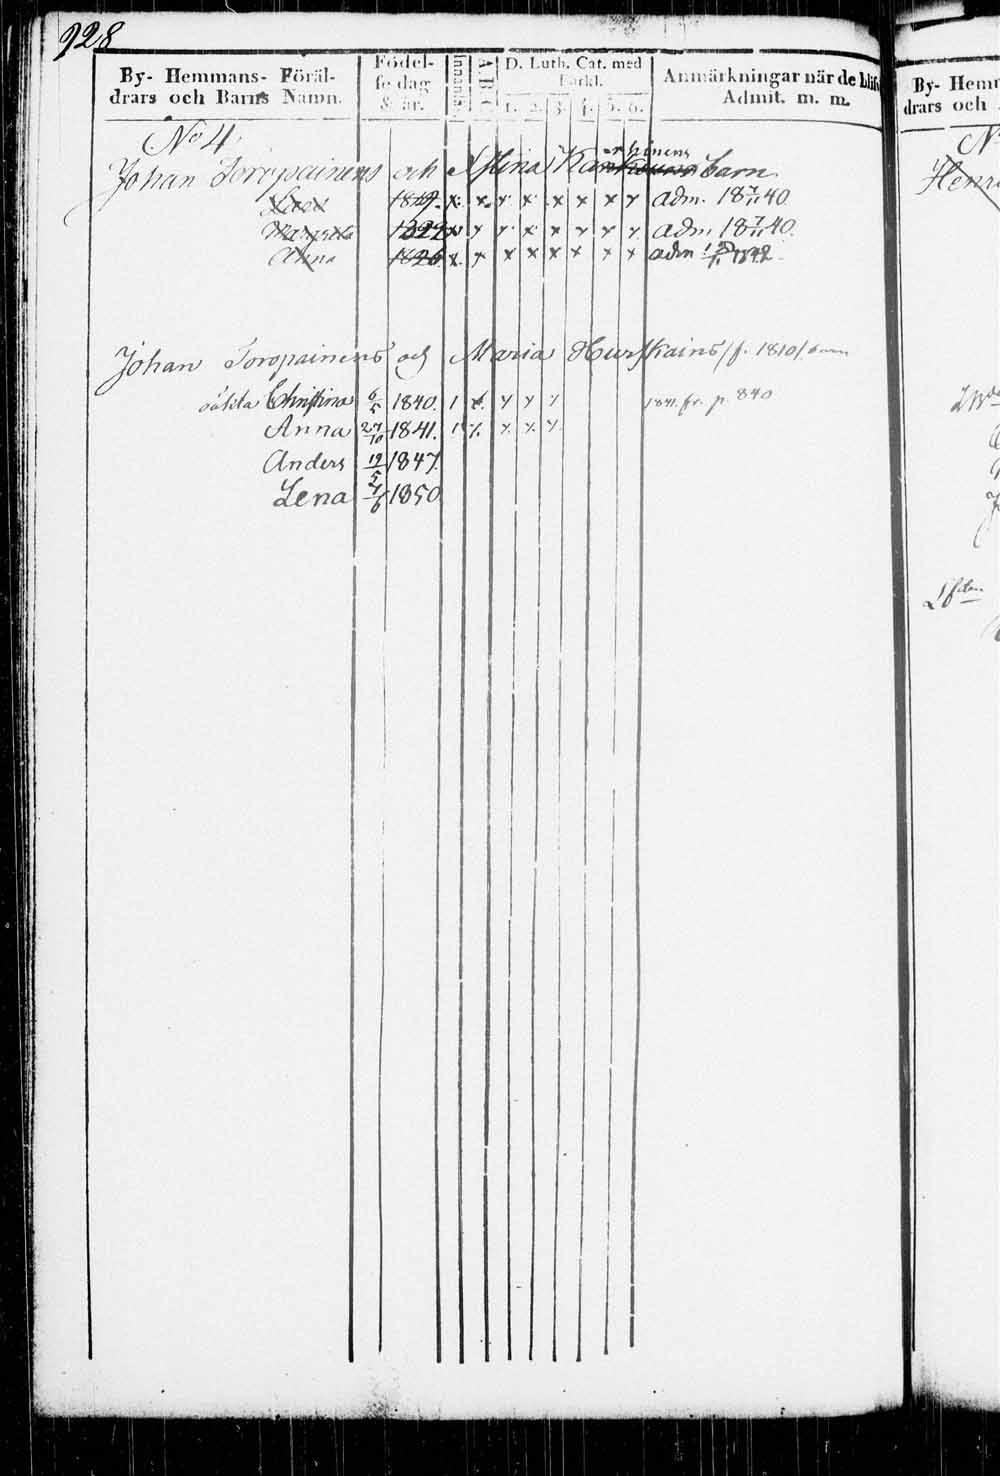 928
By- Hemmans- Föräl-
drars och Barns Namn.
Födel-
se dag
& år.
Innanl.
A B C
D. Luth. Cat. med
Förkl.
1. 2. 3. 4. 5. 6.
Anmärkningar när de blifv
Admit. m. m.
No 4
Johan Toropainens och Stina barn
1819 x x x x x x x x adm. 18 7/11 40.
Margreta 1822 x x x x x x x x adm. 18 7/11 40.
Anna 1826 x x x x x x x x adm 1842
Johan Toropainens och Maria Hurskains /f. 1810/ barn
Christina 6/5 1840. 1 x x x x 1841. fr. p. 840
Anna 27/10 1841. 1 x x x x
Anders 19/5 1847.
Lena 7/6 1850
By- Hemm
drars och
Henri